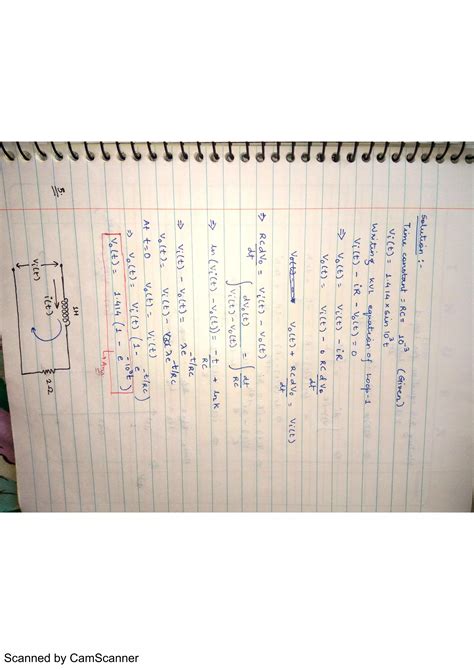 Solution :-
Time constant = RC = 10⁻³ (Given)
Vi(t) = 1.414 × sin 10³t
Writing KVL equation of Loop-1
Vi(t) - iR - Vo(t) = 0
⇒ Vo(t) = Vi(t) - iR
Vo(t) = Vi(t) - RC dVo/dt
Vo(t) + RC dVo/dt = Vi(t)
⇒ RC dVo/dt = Vi(t) - Vo(t)
∫ dVo(t)/(Vi(t) - Vo(t)) = ∫ dt/RC
⇒ ln (Vi(t) - Vo(t)) = -t/RC + ln k
⇒ Vi(t) - Vo(t) = λe^(-t/RC)
Vo(t) = Vi(t) - λe^(-t/RC)
At t=0 Vo(t) = Vi(t)
⇒ Vo(t) = Vi(t) (1 - e^(-t/RC))
Vo(t) = 1.414 (1 - e^(-10³t))
Ans
5.
1H
2Ω
Vi(t)
i(t)
Scanned by CamScanner